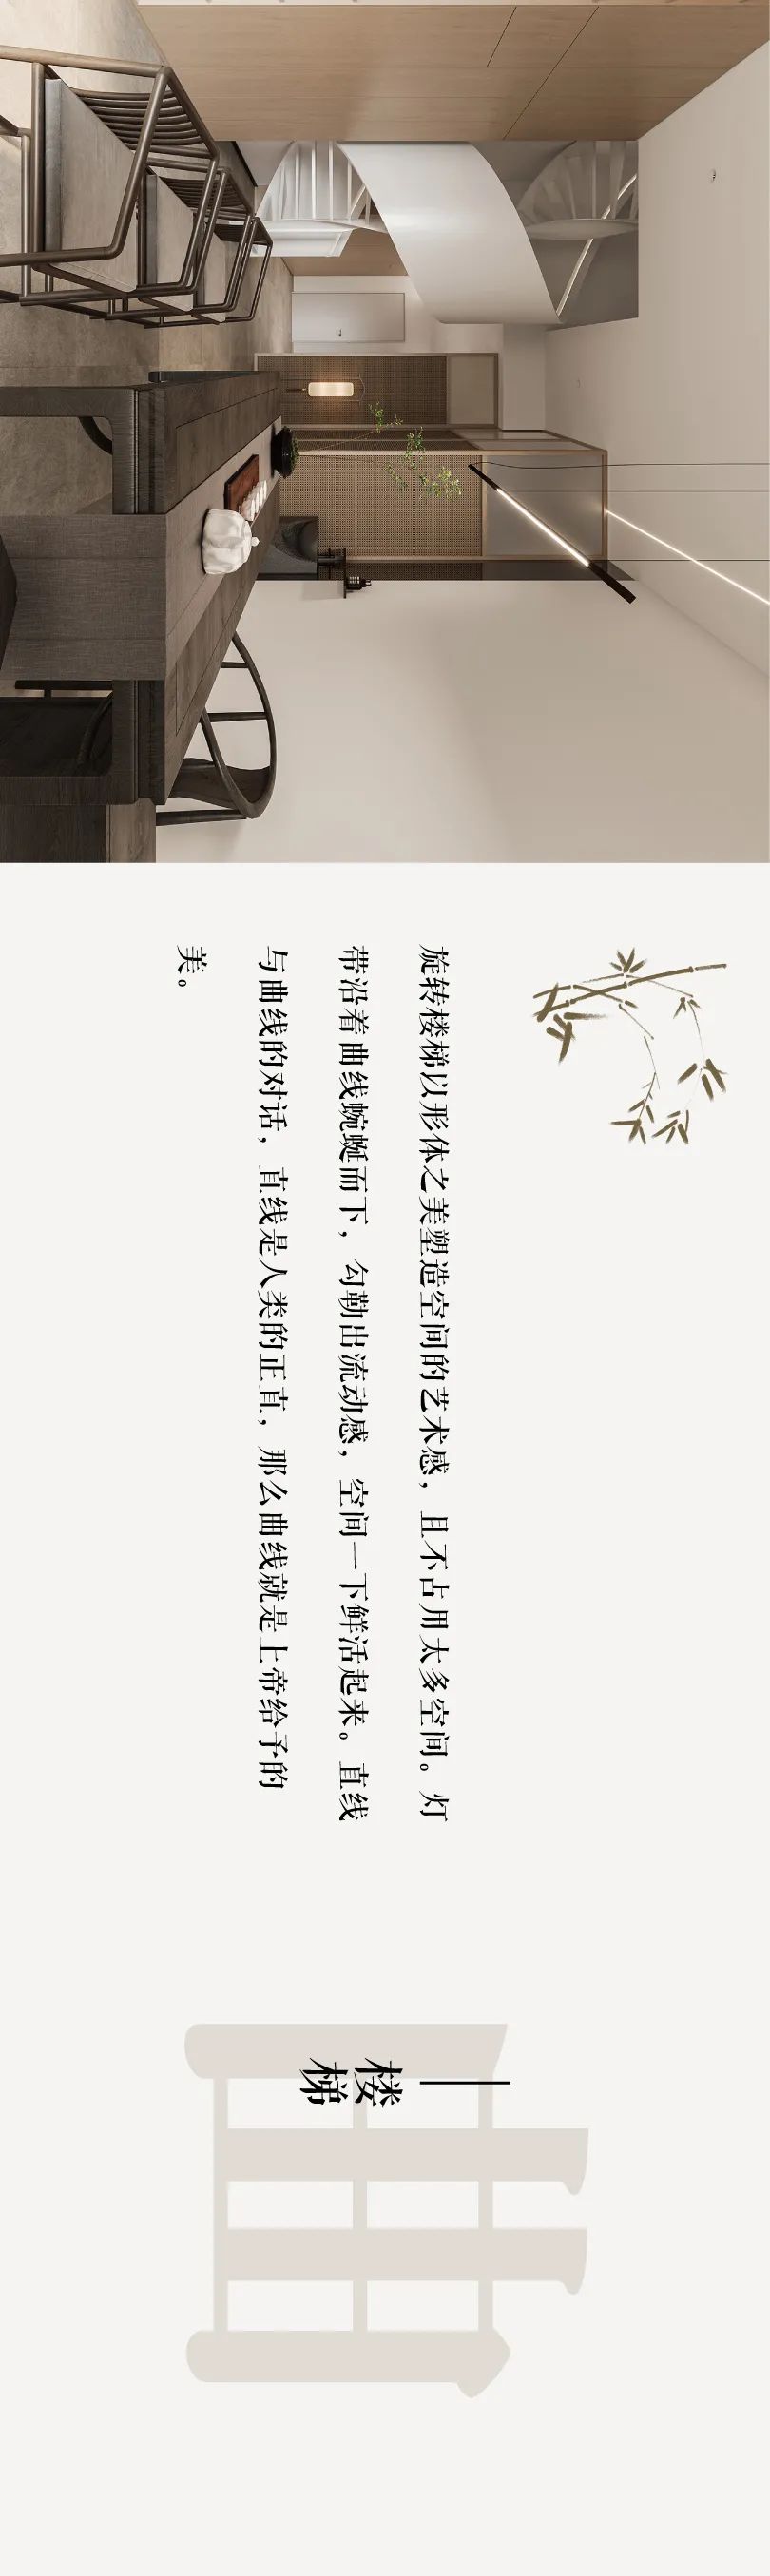 旋转楼梯以形体之美塑造空间的艺术感，且不占用太多空间。灯
带沿着曲线蜿蜒而下，勾勒出流动感，空间一下鲜活起来。直线
与曲线的对话，直线是人类的正直，那么曲线就是上帝给予的
美。
曲
楼
梯